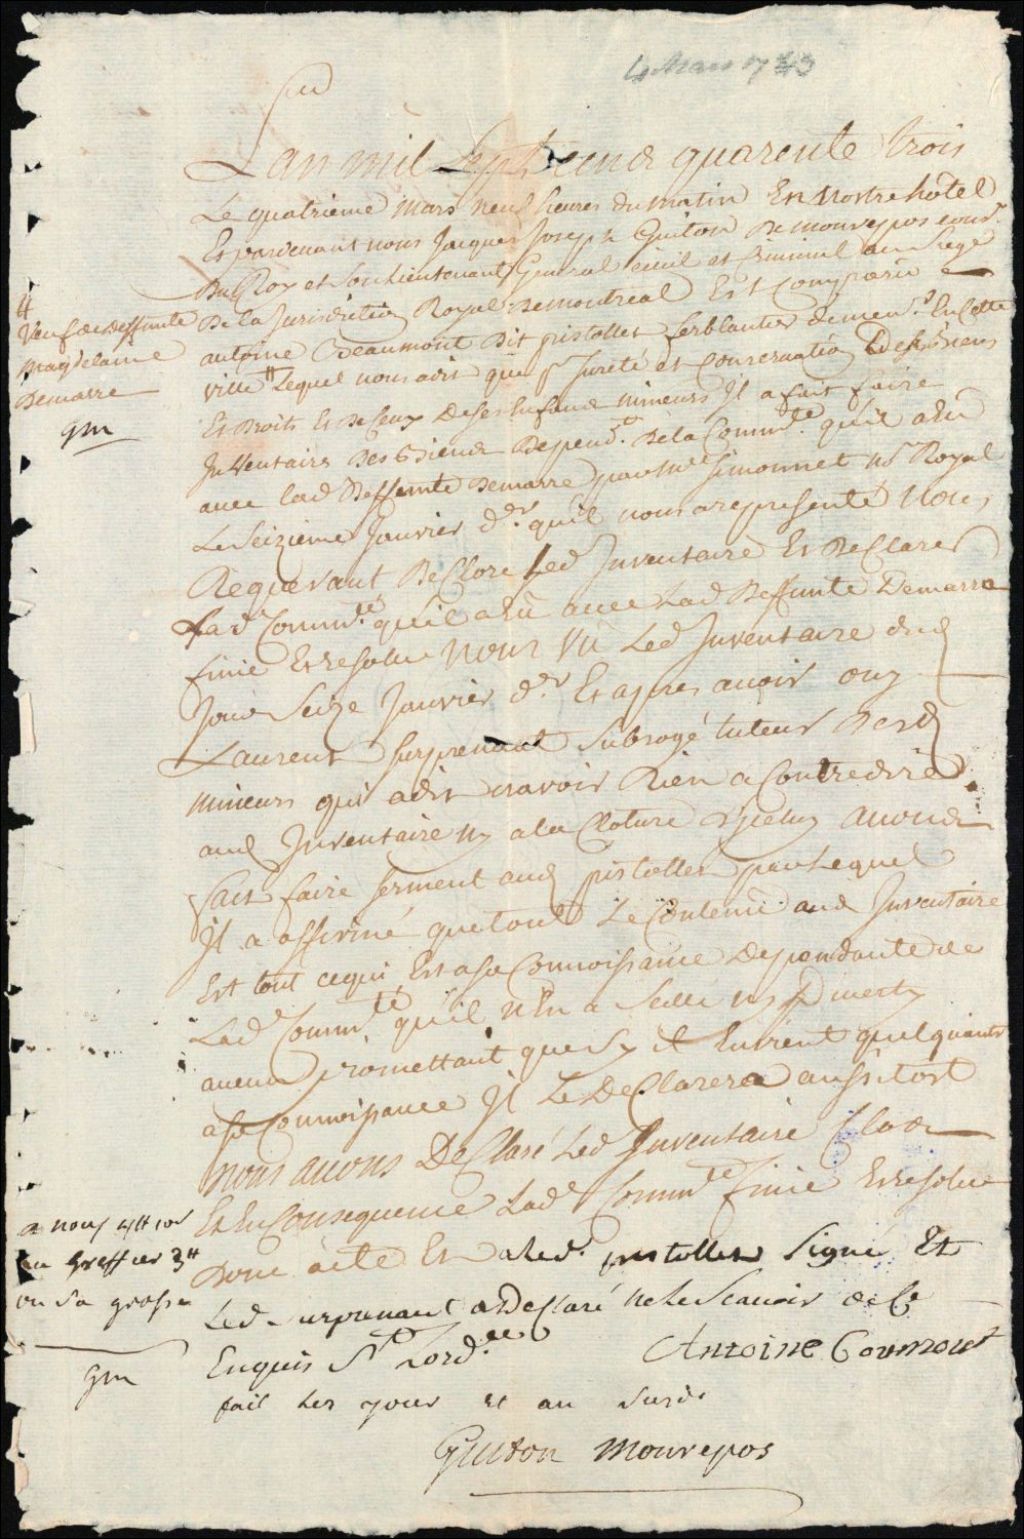 4 Mars 1743
Lan mil Sept Cend quarente trois
Le quatrieme mars neuf heures du matin En Nostre hôtel
Et pardevant nous Jacques Joseph Guiton De monrepos cons.r
Du Roy et Son Lieutenant General civil et Criminel au Siege
De la Jurisdiction Royal De montreal Est Comparu
antoine Beaumont Dit pistollet ferblantier demeur.t En Cette
ville # Lequel nous a dit que p.r Sureté et Conservation De ses Biens
Et Droits Et De Ceux De ses Enfans mineurs Il a fait faire
Inventaire Des Biens Depend.t De la Comm.té qu'il a Eu
avec lad Deffunte Demarre par M.e Simonnet N.re Royal
Le Seizieme Janvier d.er qu'il nous a representé Nous
Requerant De Clore Led Inventaire Et De Clarer
Lad Comm.té qu'il a Eû avec Lad Deffunte Demarre
finie Et resolue nous Vû Led Inventaire dud
Jour Seize Janvier d.er Et apres avoir ouy
Laurent Surprenant Subrogé tuteur Desd
mineurs qui a dit n'avoir Rien a Contredire
aud Inventaire ny a la Cloture d'Iceluy avons
fait faire Serment aud pistollet par Lequel
Il a affirmé que tout Le Contenu aud Inventaire
Est tout ce qui Est a sa Connoissance Dependante de
Lad Comm.té qu'il n'En a Cellé ny Diverty
aucun promettant que Sy Il Envient quelqu'uns
a sa Connoissance Il Le De Clarera aussitost
nous avons De Claré Led Inventaire Clos
Et En Consequence Lad Comm.té finie Et resolue
Donc acte Et a Led. pistollet Signé Et
Led Surprenant a De Claré ne Le Scavoir de Ce
Enquis S.t Lord.ce
Antoine Coumont
fait Les jour et an Susd.
Guiton Monrepos
#
Veuf de deffunte
Magdelaine
Demarre
gm
a nous 4# 10s
au Greffier 3#
ou Sa grosse
gm